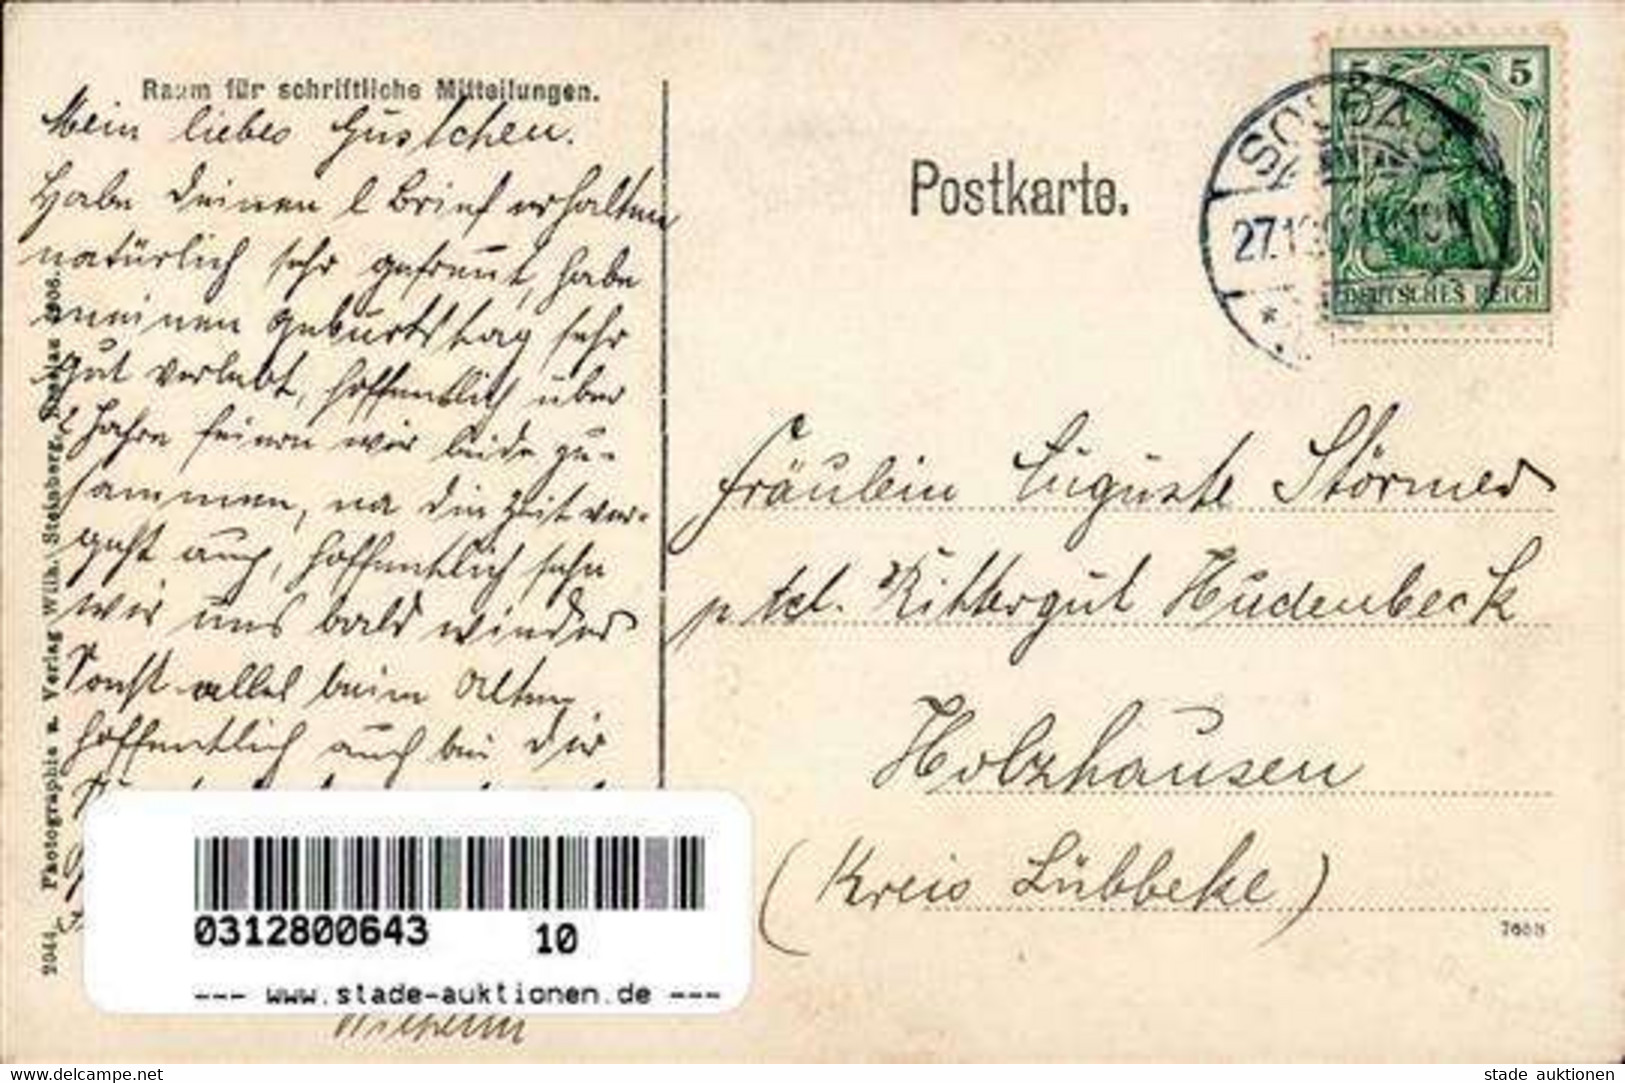 Raum für schriftliche Mitteilungen.
Mein liebes Gustchen.
Habe deinen l Brief erhalten
natürlich sehr gefreut, habe
meinen Geburtstag sehr
gut verlebt, hoffentlich über
2 Jahre feiern wir beide zu-
sammen, na die Zeit ver-
geht auch, hoffentlich sehn
wir uns bald wieder
Sonst alles beim Alten,
hoffentlich auch bei dir
Wilhelm
2044. Photographie u. Verlag Wilh. Steinberg, 1906.
Postkarte.
5 5
DEUTSCHES REICH
27.1
Fräulein Auguste Störmer
Rittergut Hudenbeck
Holzhausen
(Kreis Lübbeke)
0312800643 10
--- www.stade-auktionen.de ---
the-rose-stamps.delcampe.net
stade auktionen